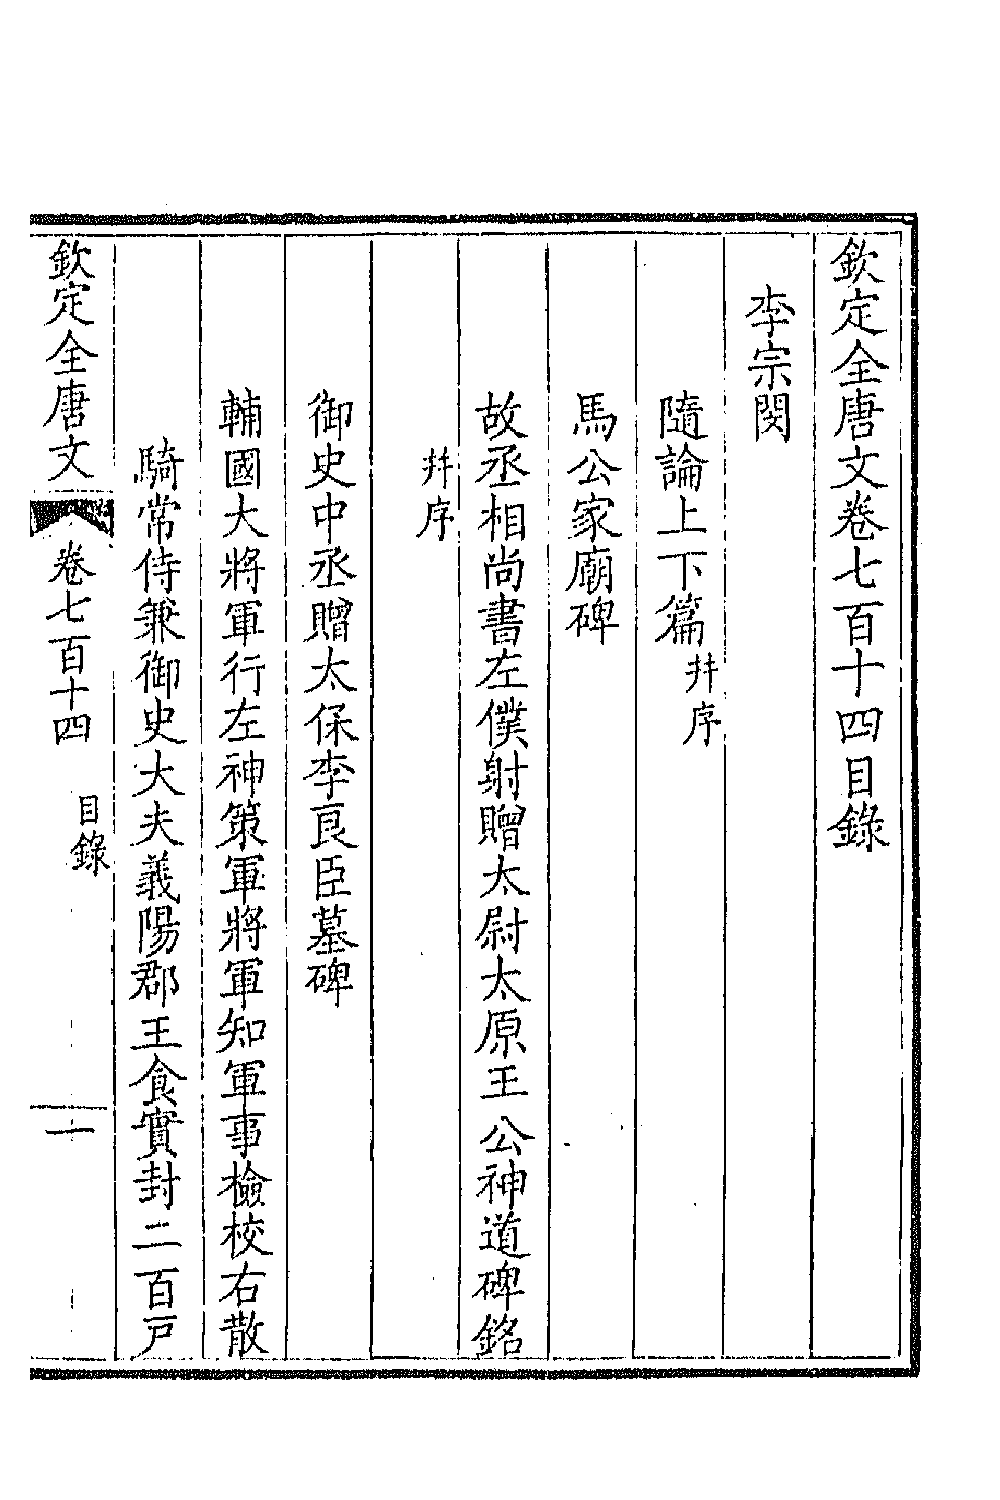 欽定全唐文卷七百十四目錄
李宗閔
隨論上下篇并序
馬公家廟碑
故丞相尚書左僕射贈太尉太原王公神道碑銘
并序
御史中丞贈太保李良臣墓碑
輔國大將軍行左神策軍將軍知軍事檢校右散
騎常侍兼御史大夫義陽郡王食實封二百戸
欽定全唐文 卷七百十四 目錄 一